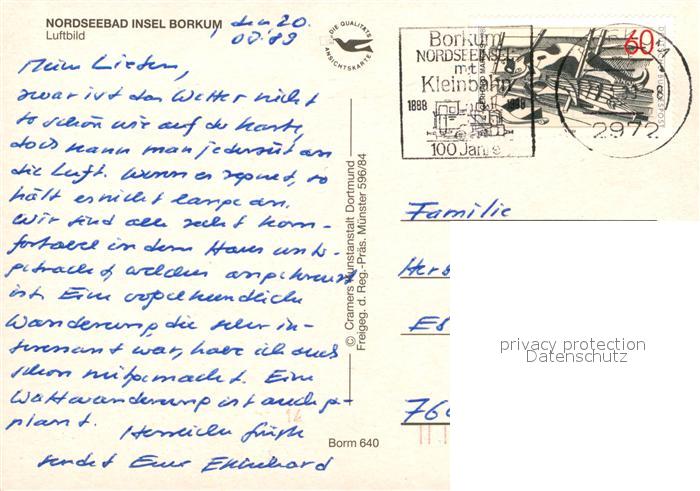 NORDSEEBAD INSEL BORKUM, den 20.
Luftbild 07.89
Meine Lieben,
zwar ist das Wetter nicht
so schön wie auf der Karte,
doch kann man jederzeit an
die Luft. Wenn es regnet, so
hält es nicht lange an.
Wir sind alle recht kom-
fortabel in dem Haus unter-
gebracht, welches angekreuzt
ist. Eine vogelkundliche
Wanderung, die sehr in-
teressant war, habe ich auch
schon mitgemacht. Eine
Wattwanderung ist auch ge-
plant. Herzliche Grüße
sendet Euer Ekkehard
DIE QUALITÄTS
ANSICHTSKARTE
© Cramers Kunstanstalt Dortmund
Freigeg. d. Reg.-Präs. Münster 596/84
Borm 640
Borkum
NORDSEEINSEL
mit
Kleinbahn
1888 1988
100 Jahre
60
2972
Familie
privacy protection
Datenschutz